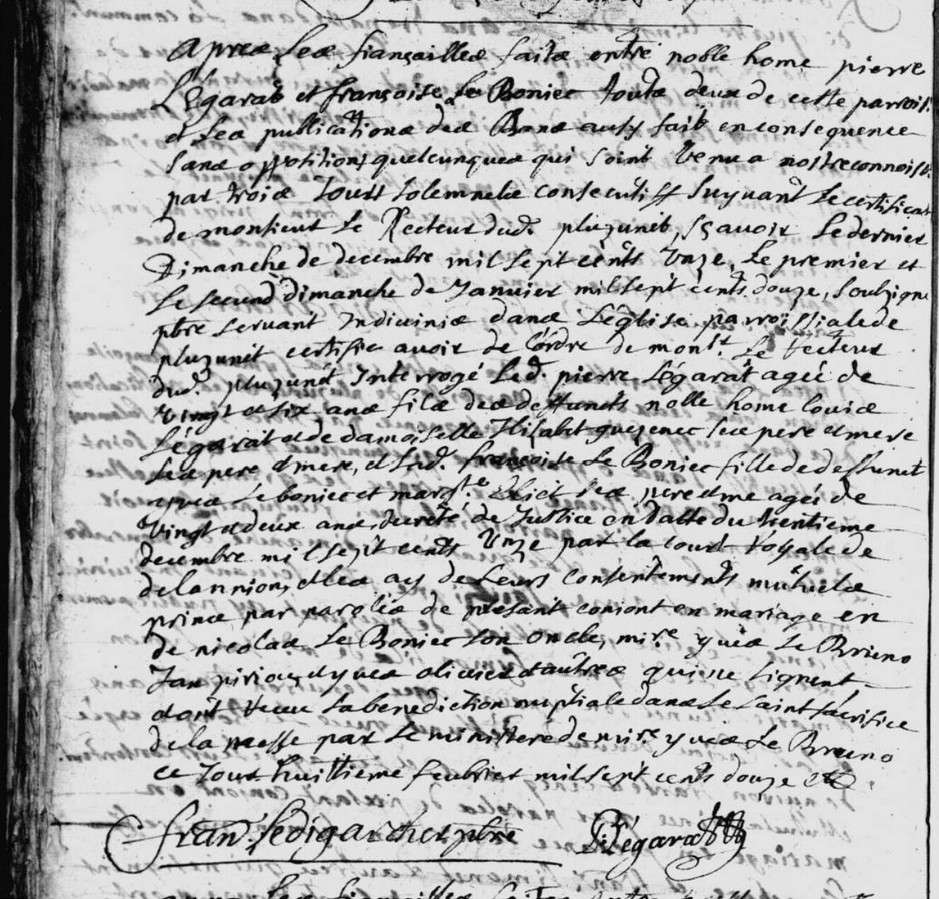 Apres les fiançailles faite entre noble home pierre
Légarat et françoise Le Boniec touts deux de cette parrois
et les publications des Bans aussy fait en consequence
sans oppotition quelcunques qui soint venu a nostre connoiss
par trois jours solemnels consecutiff suyvant le certificat
de monsieur le Recteur dud. pluzunet, sçavoir le dernier
Dimanche de decembre mil sept cents Unze, Le premier et
Le second dimanche de Janvier mil sept cents douze, soubsigne
pbre servant Indivinis dans Léglise parroissiale de
pluzunet certifie avoir de l'ordre de monsr. le recteur
dud. pluzunet Interrogé Led. pierre Légarat agée de
vingt et six ans fils des deffuncts noble home Louis
Légarat et de damoiselle Elisabet guezenec ses pere et mere
ses pere et mere, et lad. françoise Le Boniec fille de deffunct
yves Le boniec et margte. ses pere et me agés de
vingt et deux ans, decreté de Justice en datte du trentieme
decembre mil sept cents Unze par la court Royale de
de lannion, et les ay de Leurs consentements mutuels
prince par parolis de presant coniont en mariage en
de nicolas Le Boniec son oncle, mire yves Le Bruno
Jan piriou, et yves olivier et autres qui ne signent
dont receu la benediction nuptiale dans Le saint sacrifice
de la messe par Le ministere de mire yves Le Bruno
ce jour huittieme feubvrier mil sept cents douze
fran. ledigarcher pbre P: Légarat
apres Les fiançailles faites entre